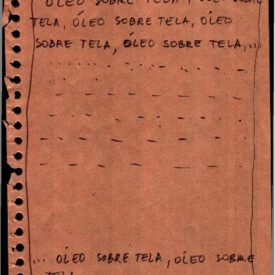 ÓLEO SOBRE TELA, ÓLEO SOBRE
TELA, ÓLEO SOBRE TELA, ÓLEO
SOBRE TELA, ÓLEO SOBRE TELA,...
... ÓLEO SOBRE TELA, ÓLEO SOBRE
TELA